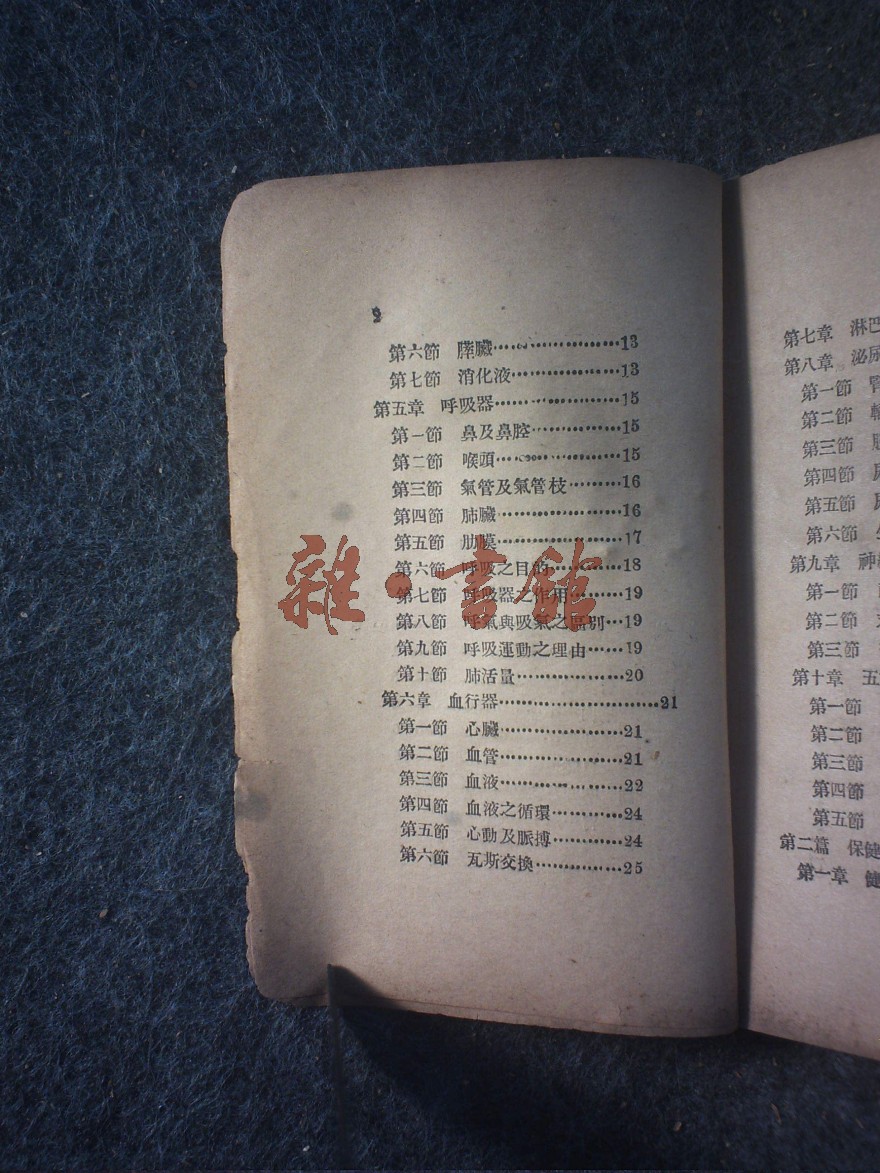 2
第六節 膵臟……………………13
第七節 消化液…………………13
第五章 呼吸器……………………15
第一節 鼻及鼻腔………………15
第二節 喉頭……………………15
第三節 氣管及氣管枝………16
第四節 肺臟……………………16
第五節 肋膜……………………17
第六節 呼吸之目的…………18
第七節 呼吸器之作用………19
第八節 呼氣與吸氣之區別…19
第九節 呼吸運動之理由……19
第十節 肺活量………………20
第六章 血行器…………………………21
第一節 心臟……………………21
第二節 血管……………………21
第三節 血液……………………22
第四節 血液之循環…………24
第五節 心動及脈搏…………24
第六節 瓦斯交換……………25
雜·書館
第七章 淋巴
第八章 泌尿
第一節
第二節
第三節
第四節
第五節
第六節
第九章 神
第一節
第二節
第三節
第十章 五
第一節
第二節
第三節
第四節
第五節
第二篇 保健
第一章 健